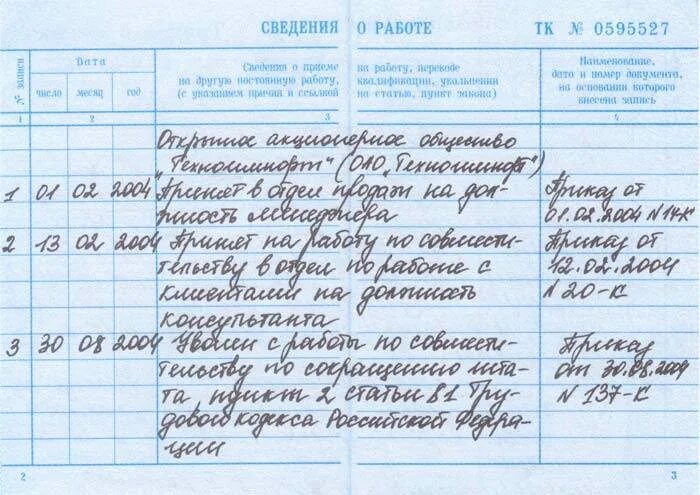 СВЕДЕНИЯ О РАБОТЕ ТК № 0595527
№ записи
Дата
число месяц год
Сведения о приеме на работу, переводе
на другую постоянную работу, квалификации, увольнении
(с указанием причин и ссылкой на статью, пункт закона)
Наименование,
дата и номер документа,
на основании которого
внесена запись
1 2 3 4
Открытое акционерное общество
"Техносимпорт" (ОАО "Техносимпорт")
1 01 02 2004 Принят в отдел продаж на дол- Приказ от
жность менеджера 01.02.2004 N 14-К
2 13 02 2004 Принят на работу по совмести- Приказ от
тельству в отдел по работе с 12.02.2004
клиентами на должность N 20-К
консультанта
3 30 08 2004 Уволен с работы по совмести- Приказ
тельству по сокращению шта- от 30.08.2004
та, пункт 2 статьи 81 Тру- N 137-К
дового кодекса Российской Федера-
ции
2 3